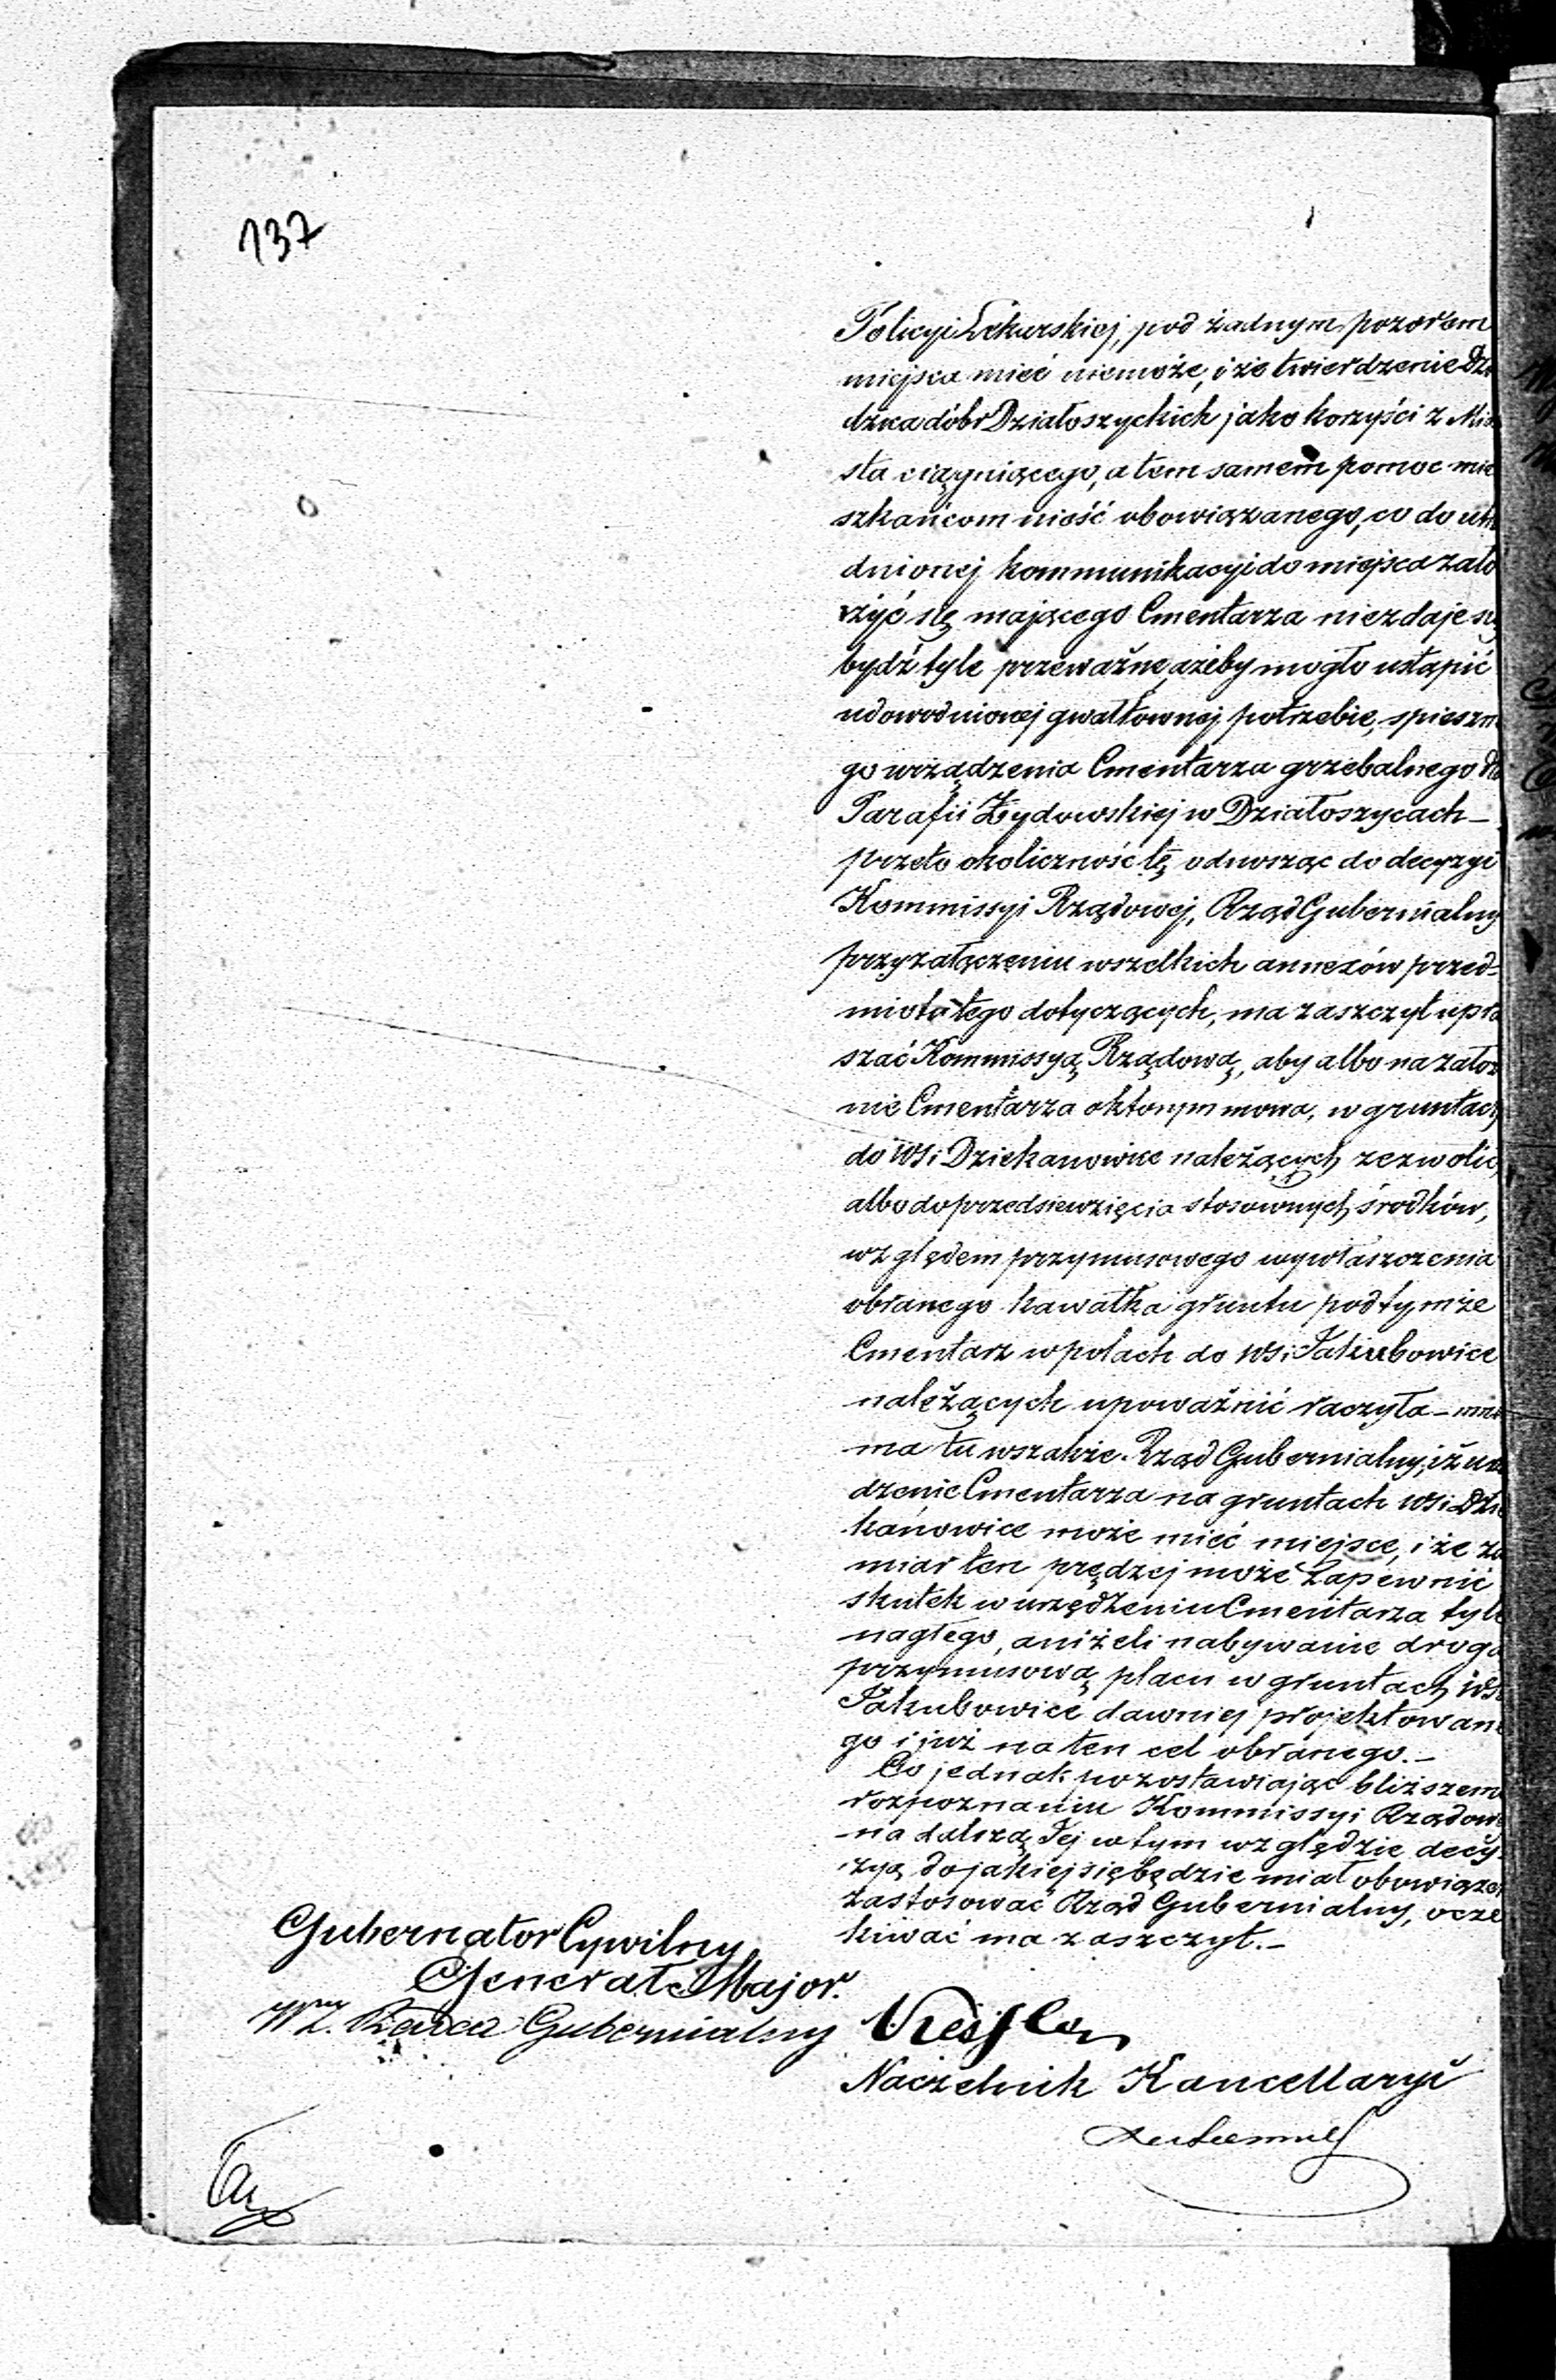 137
Policyi Lekarskiej, pod żadnym pozorem
miejsca mieć niemoże, i że twierdzenie Dzie
dzica dóbr Działoszyckich jako korzyści z Mia
sta ciągniącego, a tem samem pomoc mie
szkańcom nieść obowiązanego, co do utru
dnionej kommunikacyi do miejsca zało
rzyć się mającego Cmentarza niezdaje się
bydź tyle przeważne, ażeby mogło ustąpić
udowodnionej gwałtownej potrzebie, spieszne
go urządzenia Cmentarza grzebalnego dla
Parafii Żydowskiej w Działoszycach –
przeto okoliczność tę odnosząc do decyzyi
Kommissyi Rządowej, Rząd Gubernialny
przy załączeniu wszelkich annexów przed-
miotu tego dotyczących, ma zaszczyt upra
szać Kommissyą Rządową, aby albo na założe
nie Cmentarza októrym mowa, w gruntach
do Wsi Dziekanowice należących zezwolić,
albo do przedsiewzięcia stosownych środków,
względem przymusowego wywłaszczenia
obranego kawałka gruntu pod tymże
Cmentarz w polach do Wsi Jakubowice
należących upoważnić raczyła –
ma tu wszakże Rząd Gubernialny, iż urzą
dzenie Cmentarza na gruntach Wsi Dzie
kanowice może mieć miejsce, i że za
miar ten prędzej może zapewnić
skutek w urzędzeniu Cmentarza tyle
nagłego, aniżeli nabywanie drogą
przymusową placu w gruntach Wsi
Jakubowice dawniej projektowane
go i już na ten cel obranego. –
Co jednak pozostawiając bliższemu
rozpoznaniu Kommissyi Rządowej
na dalszą Jej w tym względzie decy-
zyą do jakiej się będzie miał obowiązek
zastosować Rząd Gubernialny, ocze
kiwać ma zaszczyt. –
Gubernator Cywilny
Generał Major.
WZ. Radca Gubernialny
Naczelnik Kancellaryi